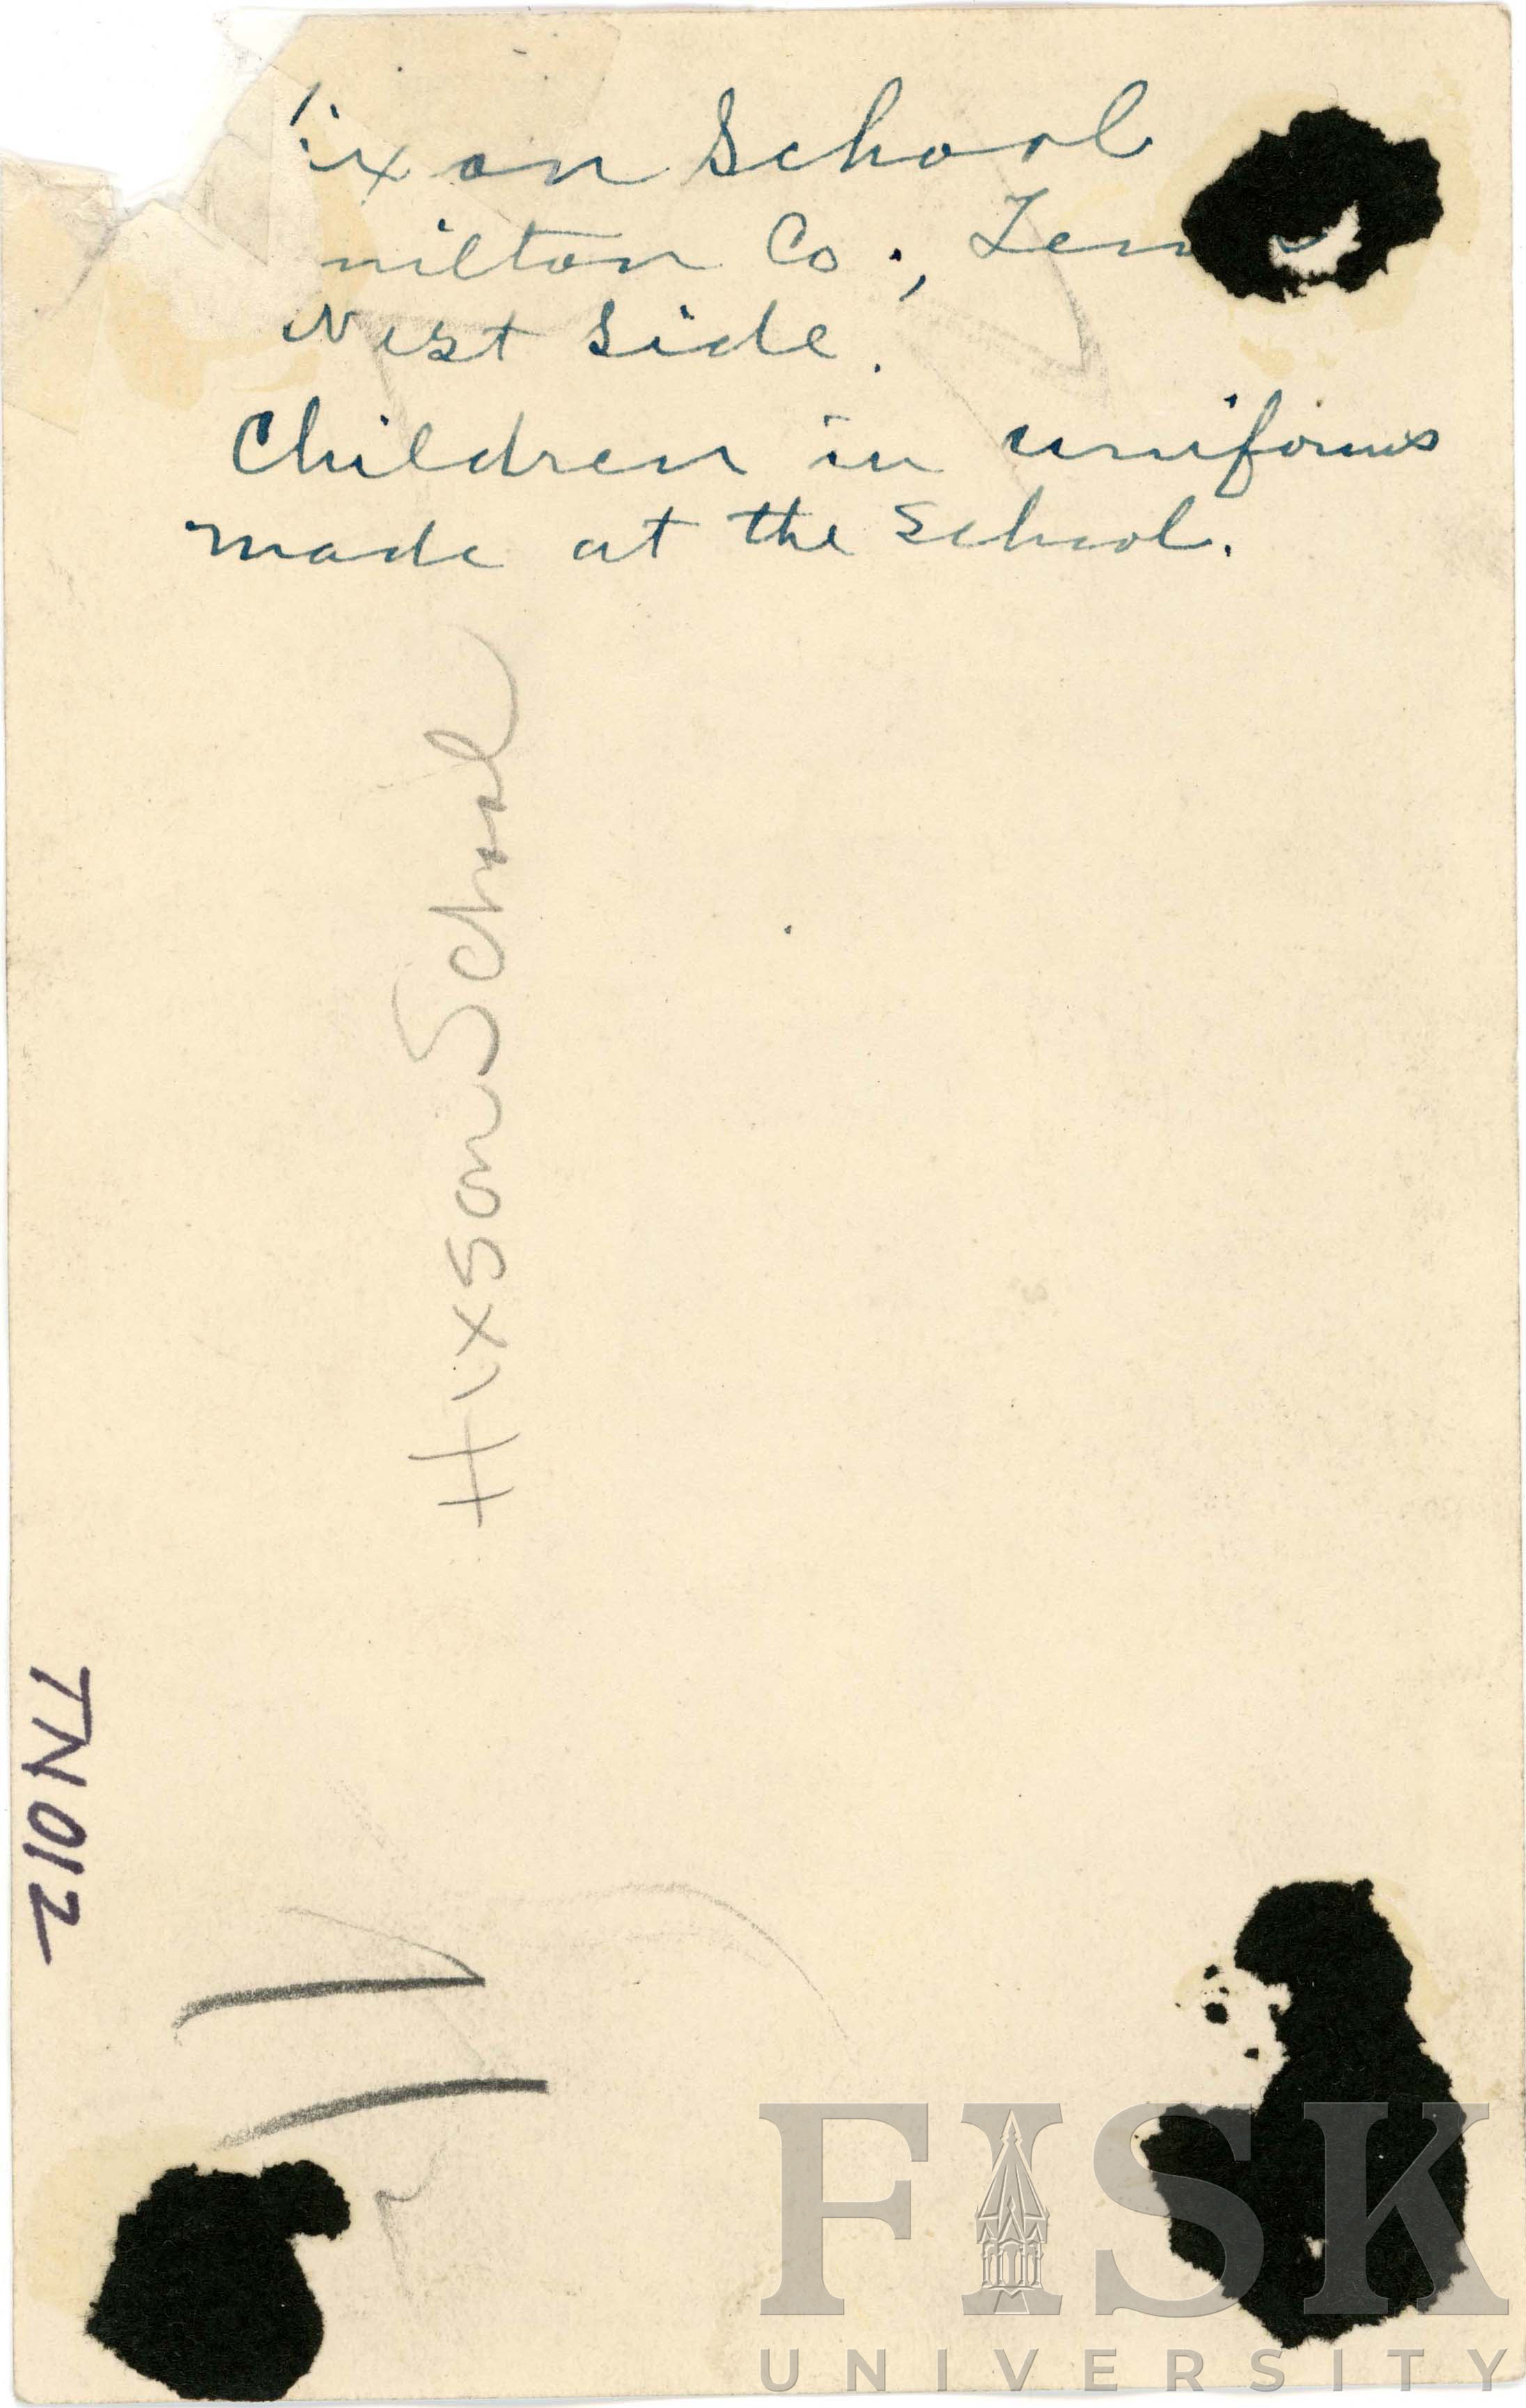 ixon School
milton Co., Tenn
West side.
Children in uniforms
made at the school.
Hixson School
TN012
FISK
UNIVERSITY